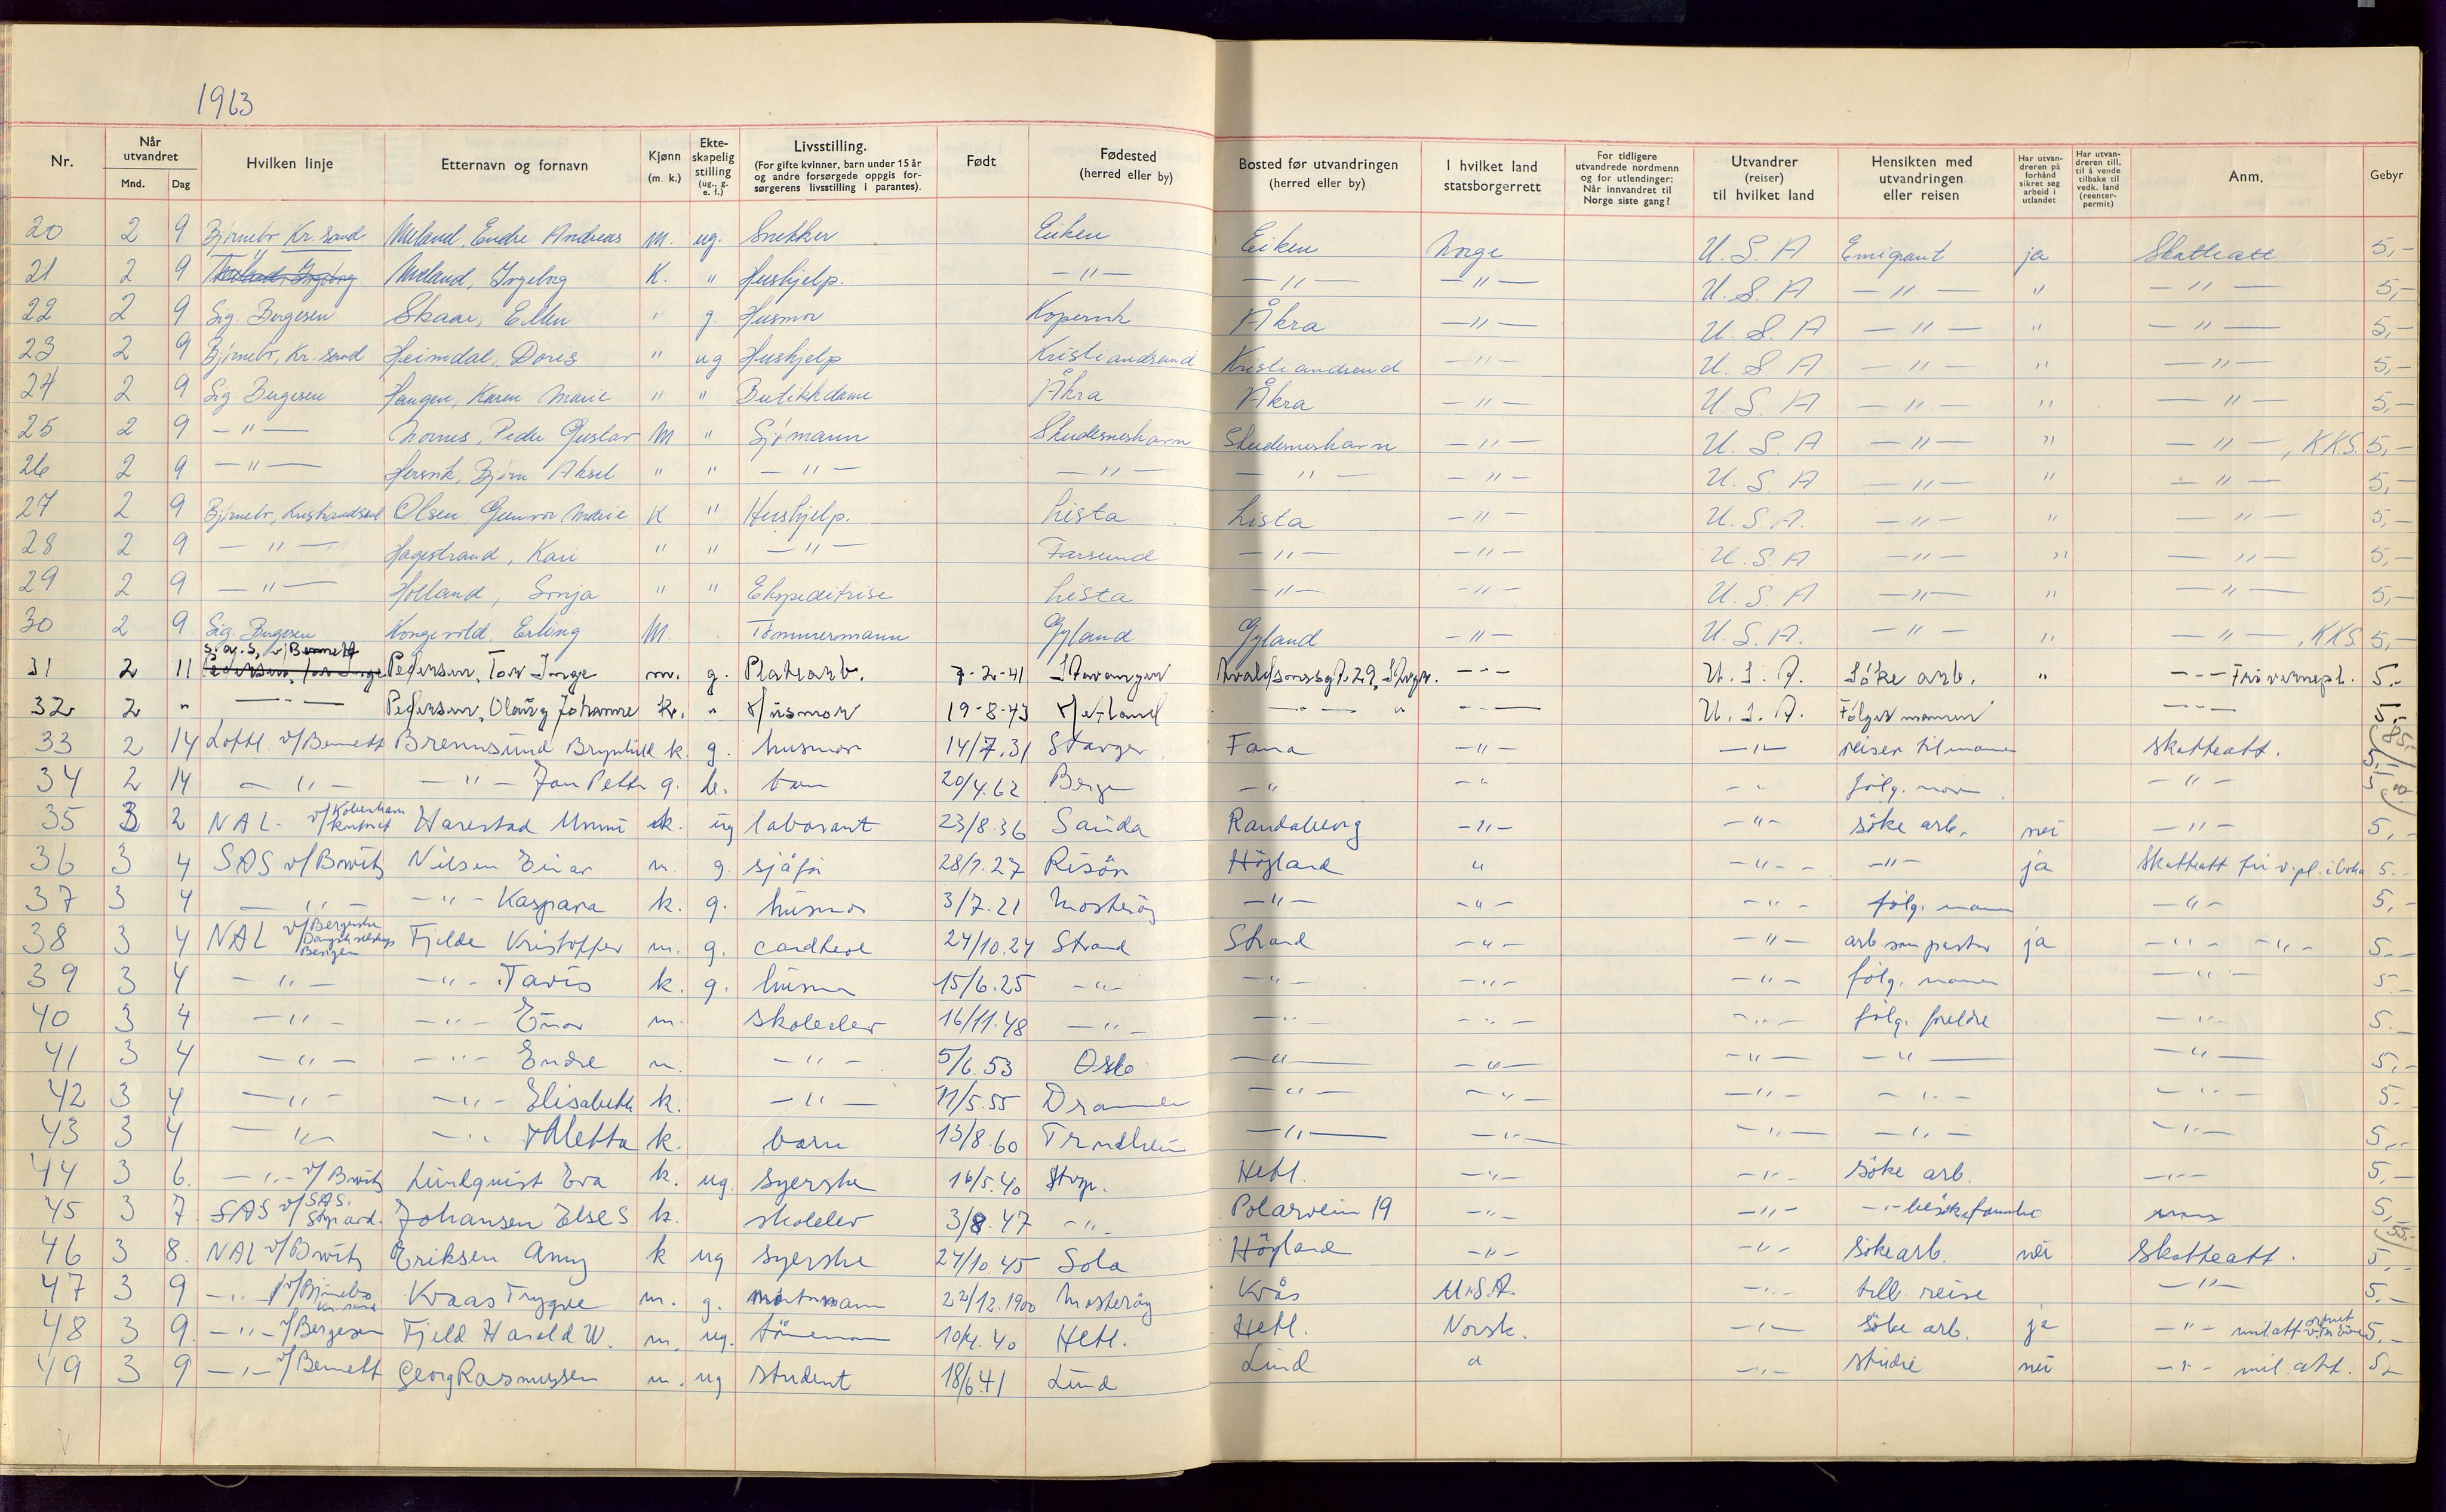 1963
Nr. | Når utvandret Mnd. Dag | Hvilken linje | Etternavn og fornavn | Kjønn (m. k.) | Ekte- skapelig stilling (ug., g. e. f.) | Livsstilling. (For gifte kvinner, barn under 15 år og andre forsørgede oppgis for- sørgerens livsstilling i parantes). | Født | Fødested (herred eller by) | Bosted før utvandringen (herred eller by) | I hvilket land statsborgerrett | For tidligere utvandrede nordmenn og for utlendinger: Når innvandret til Norge siste gang? | Utvandrer (reiser) til hvilket land | Hensikten med utvandringen eller reisen | Har utvan- dreren på forhånd sikret seg arbeid i utlandet | Har utvan- dreren till. til å vende tilbake til vedk. land (reenter- permit) | Anm. | Gebyr
20 2 9 Bjørnebr Kr. sand Meland, Endre Andreas M. ug. Snekker Eiken Eiken Norge U. S. A Emigrant ja Skatteatt 5,-
21 2 9 Meland, Ingeborg K. " Hushjelp. -"- -"- -"- U. S. A -"- " -"- 5,-
22 2 9 Sig. Bergesen Skaar, Ellen " g. Husmor Kopervik Åkra -"- U. S. A -"- " -"- 5,-
23 2 9 Bjørnebr, Kr. sand Heimdal, Doris " ug Hushjelp Kristiandsand Kristiandsand -"- U. S. A -"- " -"- 5,-
24 2 9 Sig Bergesen Haugen, Karen Marie " " Butikkdame Åkra Åkra -"- U. S. A -"- " -"- 5,-
25 2 9 -"- Peder Gustav M " Sjømann Skudesneshavn Skudesneshavn -"- U. S. A -"- " -"-, KKS. 5,-
26 2 9 -"- Bjørn Aksel " " -"- -"- -"- -"- U. S. A -"- " -"- 5,-
27 2 9 Bjørnebr, Kristiandsand Olsen Gunvor Marie K " Hushjelp. Lista Lista -"- U. S. A. -"- " -"- 5,-
28 2 9 -"- Hagestrand, Kari " " -"- Farsund -"- -"- U. S. A -"- " -"- 5,-
29 2 9 -"- Holland, Sonja " " Ekspeditrise Lista -"- -"- U. S. A -"- " -"- 5,-
30 2 9 Sig. Bergesen Kongevold, Erling M. Tømmermann Gyland Gyland -"- U. S. A. -"- " -"-, KKS 5,-
31 2 11 S.a.s, v/Bennett Pedersen, Tor Inge m. g. Platearb. 7-2-41 Stavanger 29, Stvgr. -"- U. S. A. Söke arb. " -"- Fri vernepl. 5.-
32 2 " -"- Pedersen, Olaug Johanne k. " Husmor 19-8-43 Hetland -"- " -"- U. S. A. Følger mannen -"- 5,-
33 2 14 Loftl. v/Bennett Brennsund Brynhild k. g. husmor 14/7.31 Stavger. Fana -"- -"- reiser til mann skatteatt. 5,-
34 2 14 -"- -"- Jan Petter g. k. barn 20/4.62 Bergen -"- -" -" følg. mor -"- 5,-
35 3 2 NAL - v/København kontoret Harestad Unni k. ug laborant 23/8.36 Sauda Randaberg -"- -"- söke arb. nei -"- 5,-
36 3 4 SAS v/Bowitz Nilsen Einar m. g. sjåför 28/1.27 Risör Högland " -"- -"- ja Skatteatt fri v.pl. 5.-
37 3 4 -"- -"- Kaspara k. g. husmor 3/7.21 Mosteröy -"- -"- -"- følg. mann -"- 5,-
38 3 4 NAL v/Bergenske Dampsk.selskap Bergen Fjelde Kristoffer m. g. 24/10.24 Strand Strand -"- -"- arb som pastor ja -"- -"- 5.-
39 3 4 -"- -"- k. g. husmor 15/6.25 -"- -"- -"- -"- følg. mannen -"- 5.-
40 3 4 -"- -"- Einar m. skoleelev 16/11.48 -"- -"- -"- -"- følg. foreldre -"- 5.-
41 3 4 -"- -"- Endre m. -"- 5/6.53 Oslo -"- -"- -"- -"- -"- 5,-
42 3 4 -"- -"- Elisabeth k. -"- 11/5.55 Drammen -"- -"- -"- -"- -"- 5.-
43 3 4 -"- -"- Metta k. barn 13/8.60 Trondheim -"- -"- -"- -"- -"- 5,-
44 3 6. -"- v/Bowitz Lundquist Eva k. ug. syerske 16/5.40 Stvgr. Hetl. -"- -"- söke arb. -"- 5,-
45 3 7. SAS v/SAS. Johansen Else S k. skoleelev 3/8.47 -"- Polarveien 19 -"- -"- -"- besøke familie 5,-
46 3 8. NAL v/Bowitz Eriksen Anny k ug syerske 24/10.45 Sola Högland -"- -"- Söke arb. nei Skatteatt. 5,-
47 3 9 -"- v/Bjørnebo Kr. sand Kraas Trygve m. g. 22/12.1900 Mosteröy Krås U.S.A. -"- tilb. reise -"- 5.-
48 3 9. -"- v/Bergesen Fjeld Harald W. m. ug. tömmermann 10/4.40 Hetl. Hetl. Norsk. -"- söke arb. ja -"- mil.att 5,-
49 3 9 -"- v/Bennett Georg Rasmussen m. ug student 18/6 41 Lund Lund " -"- studie nei -"- mil. att. 5,-